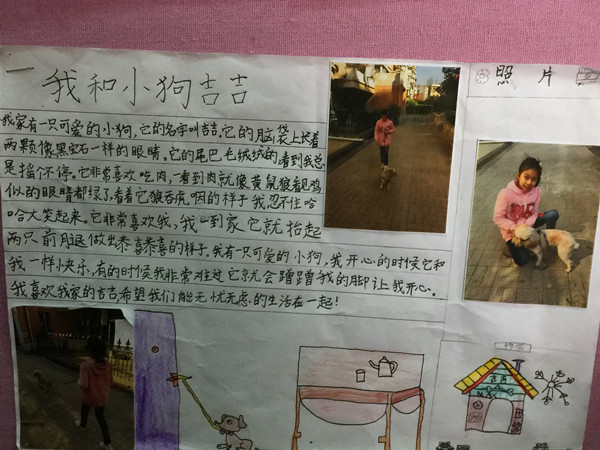 我和小狗吉吉
照片
我家有一只可爱的小狗,它的名字叫吉吉,它的脑袋上长着
两颗像黑宝石一样的眼睛。它的尾巴毛绒绒的,看到我总
是摇个不停。它非常喜欢吃肉,一看到肉就像黄鼠狼看见鸡
似的眼睛都绿了,看着它狼吞虎咽的样子我忍不住哈
哈大笑起来。它非常喜欢我,我一到家它就抬起
两只前腿做出恭喜恭喜的样子。我有一只可爱的小狗,我开心的时候它和
我一样快乐,有的时候我非常难过它就会蹭蹭我的脚让我开心。
我喜欢我家的吉吉,希望我们能无忧无虑的生活在一起!
吉吉